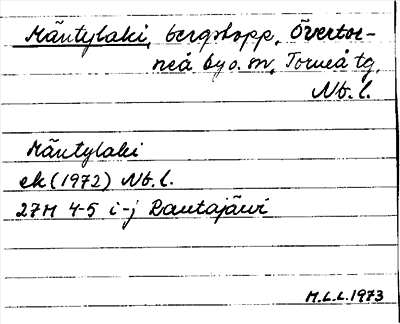 Mäntylaki, bergstopp, Övertor-
neå by o. sn, Torneå tg,
Nb. l.
Mäntylaki
ek (1972) Nb. l.
27M 4-5 i-j Rautajärvi
M.L.L. 1973